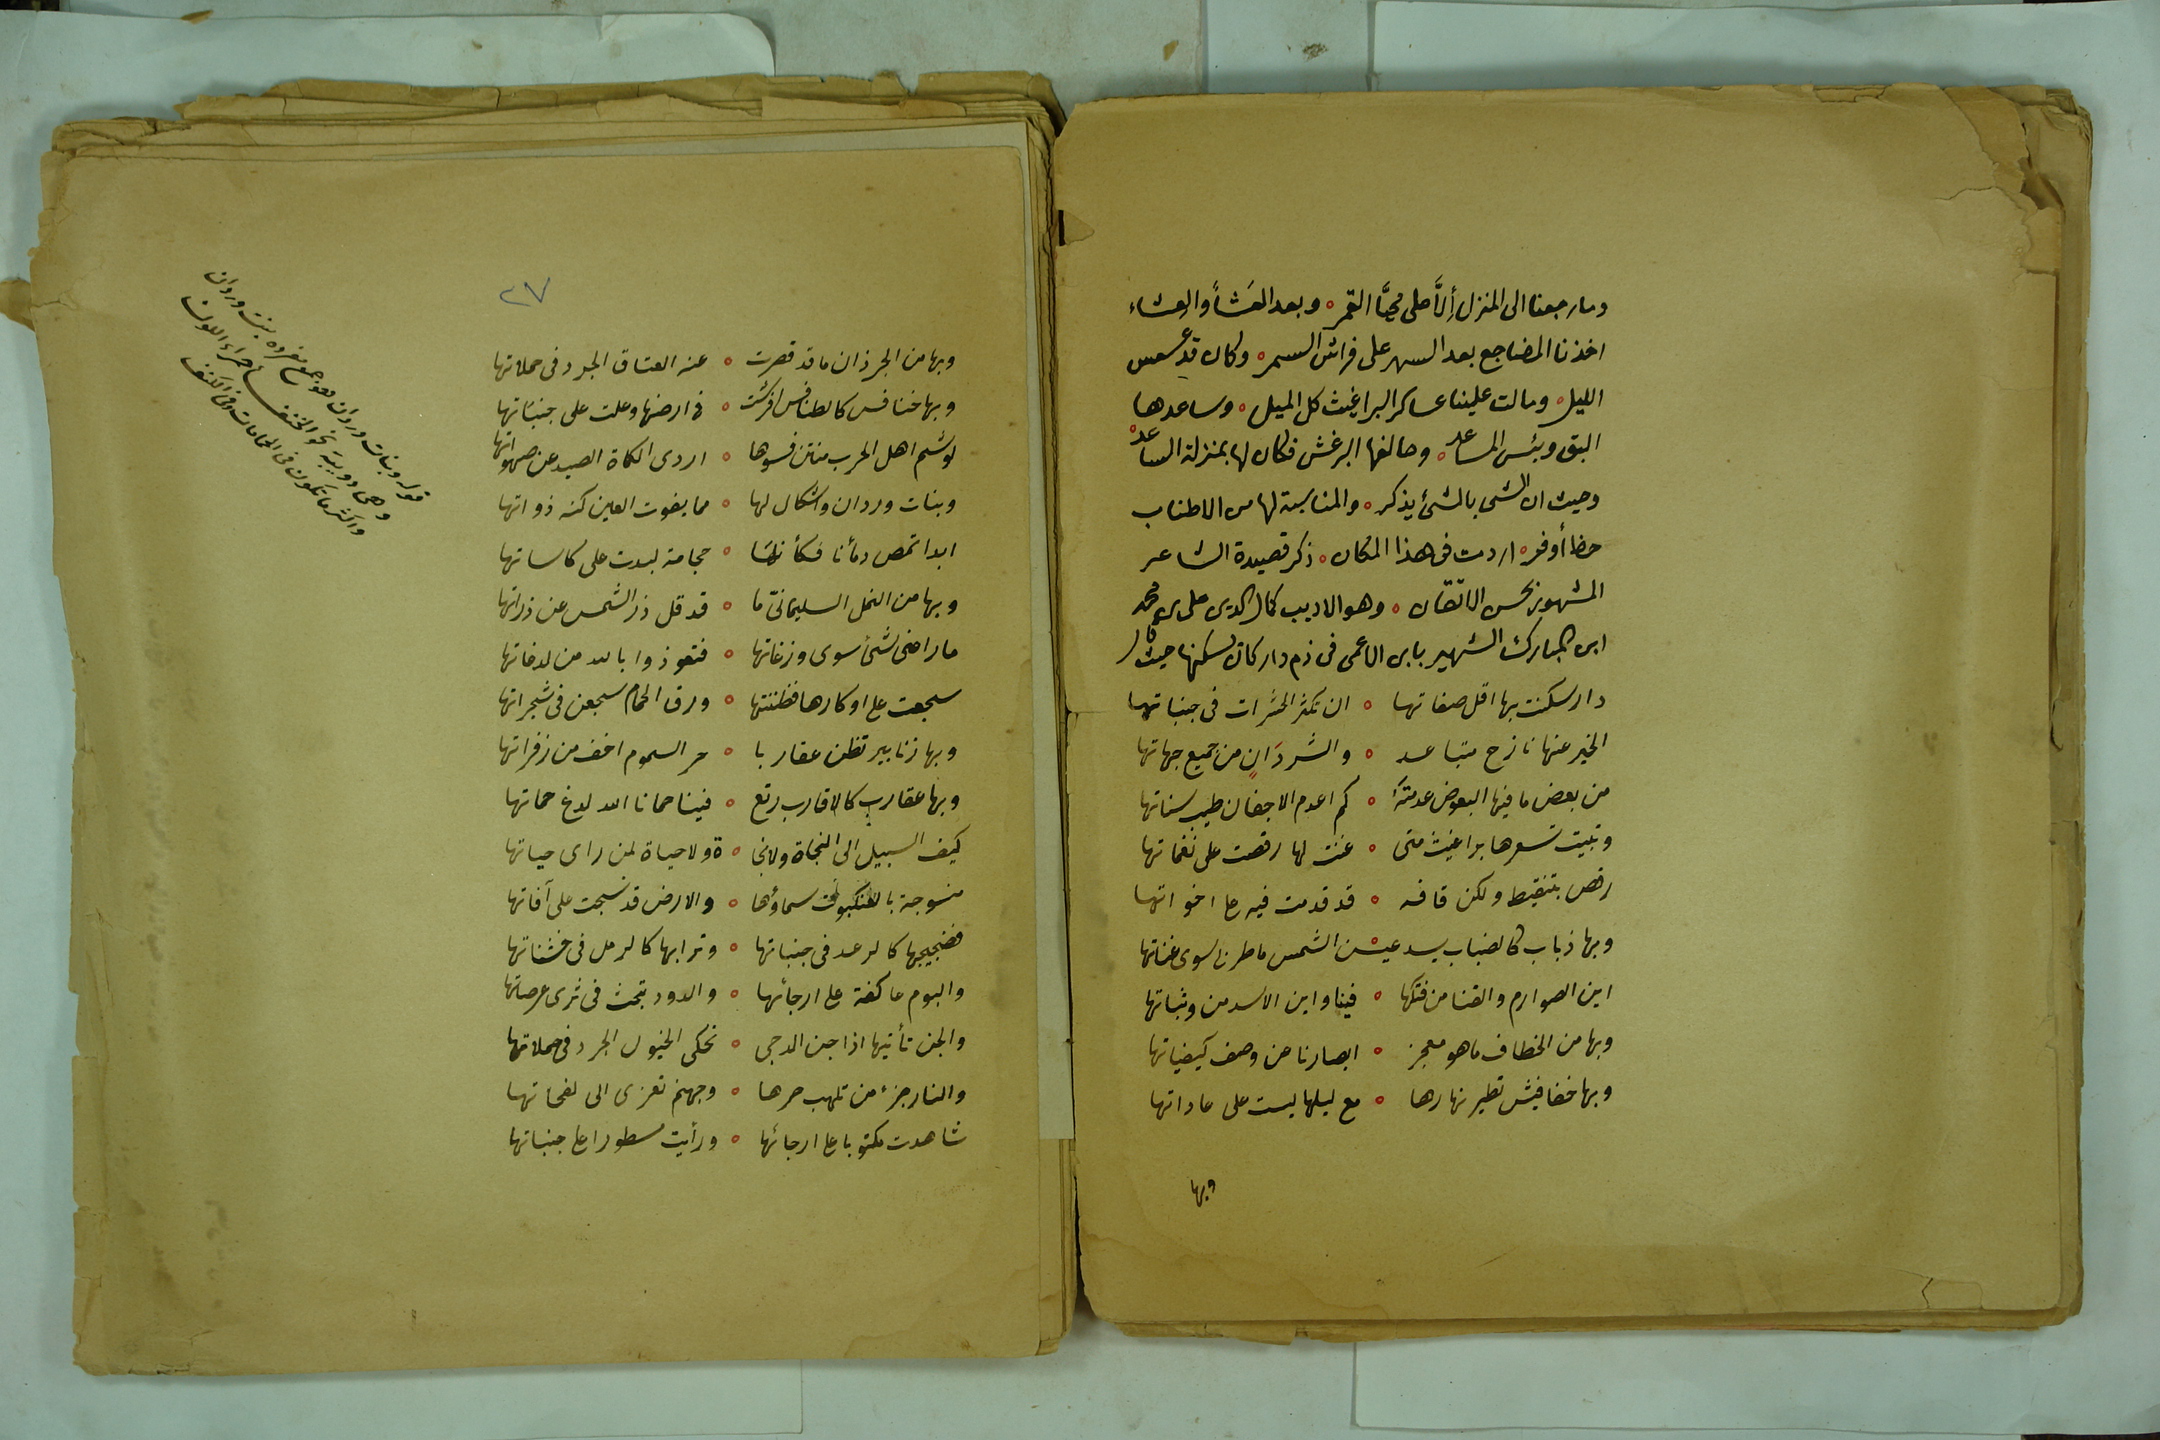 وما رجعنا الى المنزل أِلَّا على محيَّا القمر ٥ وبعد العَشَاً والعِشاء
اخذنا المضاجع بعد السهر على فراش السمر ٥ وكان قد عسعس
الليل ٥ ومالت علينا عساكر البراغيث كل الميل ٥ وساعدها
البق وبئس المساعد ٥ وحالفها البرغش فكان لها بمنزلة الساعد ٥
وحيث ان الشى بالشئ يذكر ٥ والمناسبة لها من الاطناب
حظا أوفر ٥ اردت فى هذا المكان ٥ ذكر قصيدة الشاعر
المشهور بحسن الاتقان ٥ وهو الاديب كمال الدين على بن محمد
ابن المبارك الشهير بابن الاعمى فى ذم دار كان يسكنها حيث قال
دار سكنت بها اقل صفاتها ٥ ان تكثر الحشرات فى جنباتها
الخير عنها نازح متباعد ٥ والشر دَانٍ من جميع جهاتها
من بعض ما فيها البعوض عدمتهُ ٥ كم اعدم الاجفان طيب سناتها
وتبيت تسعرها براغيث متى ٥ غنت لها رقصت على نغماتها
رقص بتنقيط ولكن قافه ٥ قد قدمت فيه على اخواتها
وبها ذباب كالضباب يسد عيـ٥ـن الشمس ما طربى سوى غناتها
اين الصوارم والقنا من فتكها ٥ فينا واين الاسد من وثباتها
وبها من الخطاف ما هو معجز ٥ ابصارنا عن وصف كيفياتها
وبها خفافيش تطير نهارها ٥ مع ليلها ليست على عاداتها
وبها
٢٧
وبها من الجرذان ما قد قصرت ٥ عنه العتاق الجرد فى حملاتها
وبها خنافس كالطنافس افرشت ٥ فى ارضها وعلت على جنباتها
لو شم اهل الحرب منتن فسوها ٥ اردى الكماة الصيد عن صهواتها
وبنات وردان واشكال لها ٥ مما يفوت العين كنه ذواتها
ابدا تمص دمأنا فكأنها ٥ حجامة لبدت على كاساتها
وبها من النمل السليمانى ما ٥ قد قل ذر الشمس عن ذراتها
ما راعنى شئ سوى وزغاتها ٥ فتعوذوا بالله من لدغاتها
سجعت على اوكارها فظننتها ٥ ورق الحمام سجعن فى شجراتها
وبها زنابير تظن عقاربا ٥ حر السموم اخف من زفراتها
وبها عقارب كالاقارب رتع ٥ فينا حمانا الله لدغ حماتها
كيف السبيل الى النجاة ولا نجا ٥ ة ولا حياة لمن راى حياتها
منسوجة بالعنكبوت سماؤها ٥ والارض قد نسجت على آفاتها
فضجيجها كالرعد فى جنباتها ٥ وترابها كالرمل فى خشناتها
والبوم عاكفة على ارجائها ٥ والدود تبحث فى ثرى عرصاتها
والجن تأتيها اذا جن الدجى ٥ تحكى الخيول الجرد فى حملاتها
والنار جزء من تلهب حرها ٥ وجهنم تعزى الى لفحاتها
شاهدت مكتوبا على ارجائها ٥ ورأيت مسطورا على جنباتها
قوله وبنات وردان هو جمع مفرده بنت وردان
وهى دويبة نحو الخنفساء حمراء اللون
واكثر ما تكون فى الحمامات وفى الكنف